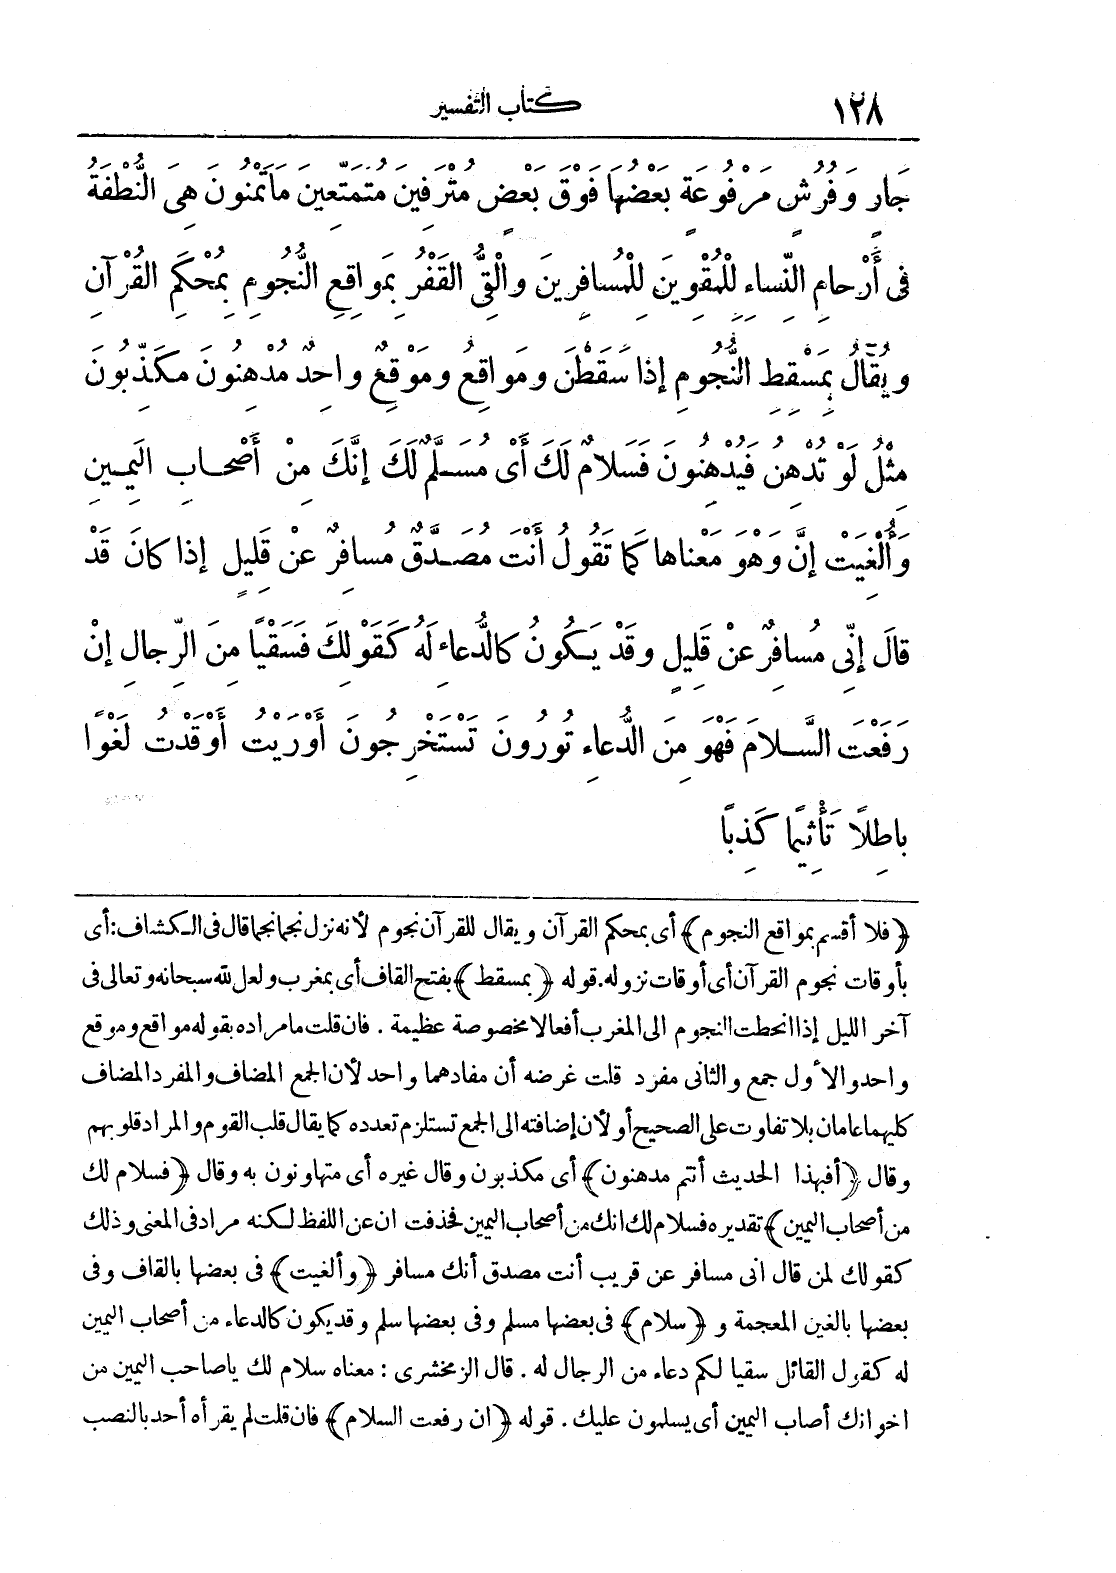 ١٢٨ كتاب التفسير
جَارٍ وَفُرُشٍ مَرْفُوعَةٍ بَعْضُهَا فَوْقَ بَعْضٍ مُتْرَفِينَ مُتَمَتِّعِينَ مَا تُمْنُونَ هِيَ النُّطْفَةُ
فى أَرْحامِ النِّساءِ لِلْمُقْوِينَ لِلْمُسافِرِينَ والْقِىُّ القَفْرُ بِمَواقِعِ النُّجُومِ بِمُحْكَمِ القُرْآنِ
ويُقَالُ بِمَسْقِطِ النُّجُومِ إذا سَقَطْنَ ومَواقِعُ ومَوْقِعٌ واحِدٌ مُدْهِنُونَ مُكَذِّبُونَ
مِثْلُ لَوْ تُدْهِنُ فَيُدْهِنُونَ فَسَلامٌ لَكَ أَىْ مُسَلَّمٌ لَكَ إنَّكَ مِنْ أَصْحابِ اليَمِينِ
وَأُلْغِيَتْ إنَّ وَهْوَ مَعْناها كَما تَقُولُ أَنْتَ مُصَدَّقٌ مُسافِرٌ عَنْ قَلِيلٍ إذا كانَ قَدْ
قالَ إنِّى مُسافِرٌ عَنْ قَلِيلٍ وقَدْ يَكُونُ كالدُّعاءِ لَهُ كَقَوْلِكَ فَسَقْيًا مِنَ الرِّجالِ إنْ
رَفَعْتَ السَّلامَ فَهْوَ مِنَ الدُّعاءِ تُورُونَ تَسْتَخْرِجُونَ أَوْرَيْتُ أَوْقَدْتُ لَغْوًا
باطِلًا تَأْثِيمًا كَذِبًا
﴿فلا أقسم بمواقع النجوم﴾ أى بمحكم القرآن ويقال للقرآن نجوم لأنه نزل نجما نجما قال فى الكشاف: أى
بأوقات نجوم القرآن أى أوقات نزوله. قوله ﴿بمسقط﴾ بفتح القاف أى بمغرب ولعل لله سبحانه وتعالى فى
آخر الليل إذا انحطت النجوم الى المغرب أفعالا مخصوصة عظيمة . فان قلت ما مراده بقوله مواقع وموقع
واحد والأول جمع والثانى مفرد قلت غرضه أن مفادهما واحد لأن الجمع المضاف والمفرد المضاف
كليهما عامان بلا تفاوت على الصحيح أو لأن إضافته الى الجمع تستلزم تعدده كما يقال قلب القوم والمراد قلوبهم
وقال ﴿أفبهذا الحديث أنتم مدهنون﴾ أى مكذبون وقال غيره أى متهاونون به وقال ﴿فسلام لك
من أصحاب اليمين﴾ تقديره فسلام لك انك من أصحاب اليمين فحذفت ان عن اللفظ لكنه مراد فى المعنى وذلك
كقولك لمن قال انى مسافر عن قريب أنت مصدق أنك مسافر ﴿وألغيت﴾ فى بعضها بالقاف وفى
بعضها بالغين المعجمة و ﴿سلام﴾ فى بعضها مسلم وفى بعضها سلم وقد يكون كالدعاء من أصحاب اليمين
له كقول القائل سقيا لكم دعاء من الرجال له . قال الزمخشرى : معناه سلام لك ياصاحب اليمين من
اخوانك أصاب اليمين أى يسلمون عليك . قوله ﴿ان رفعت السلام﴾ فان قلت لم يقرأه أحد بالنصب